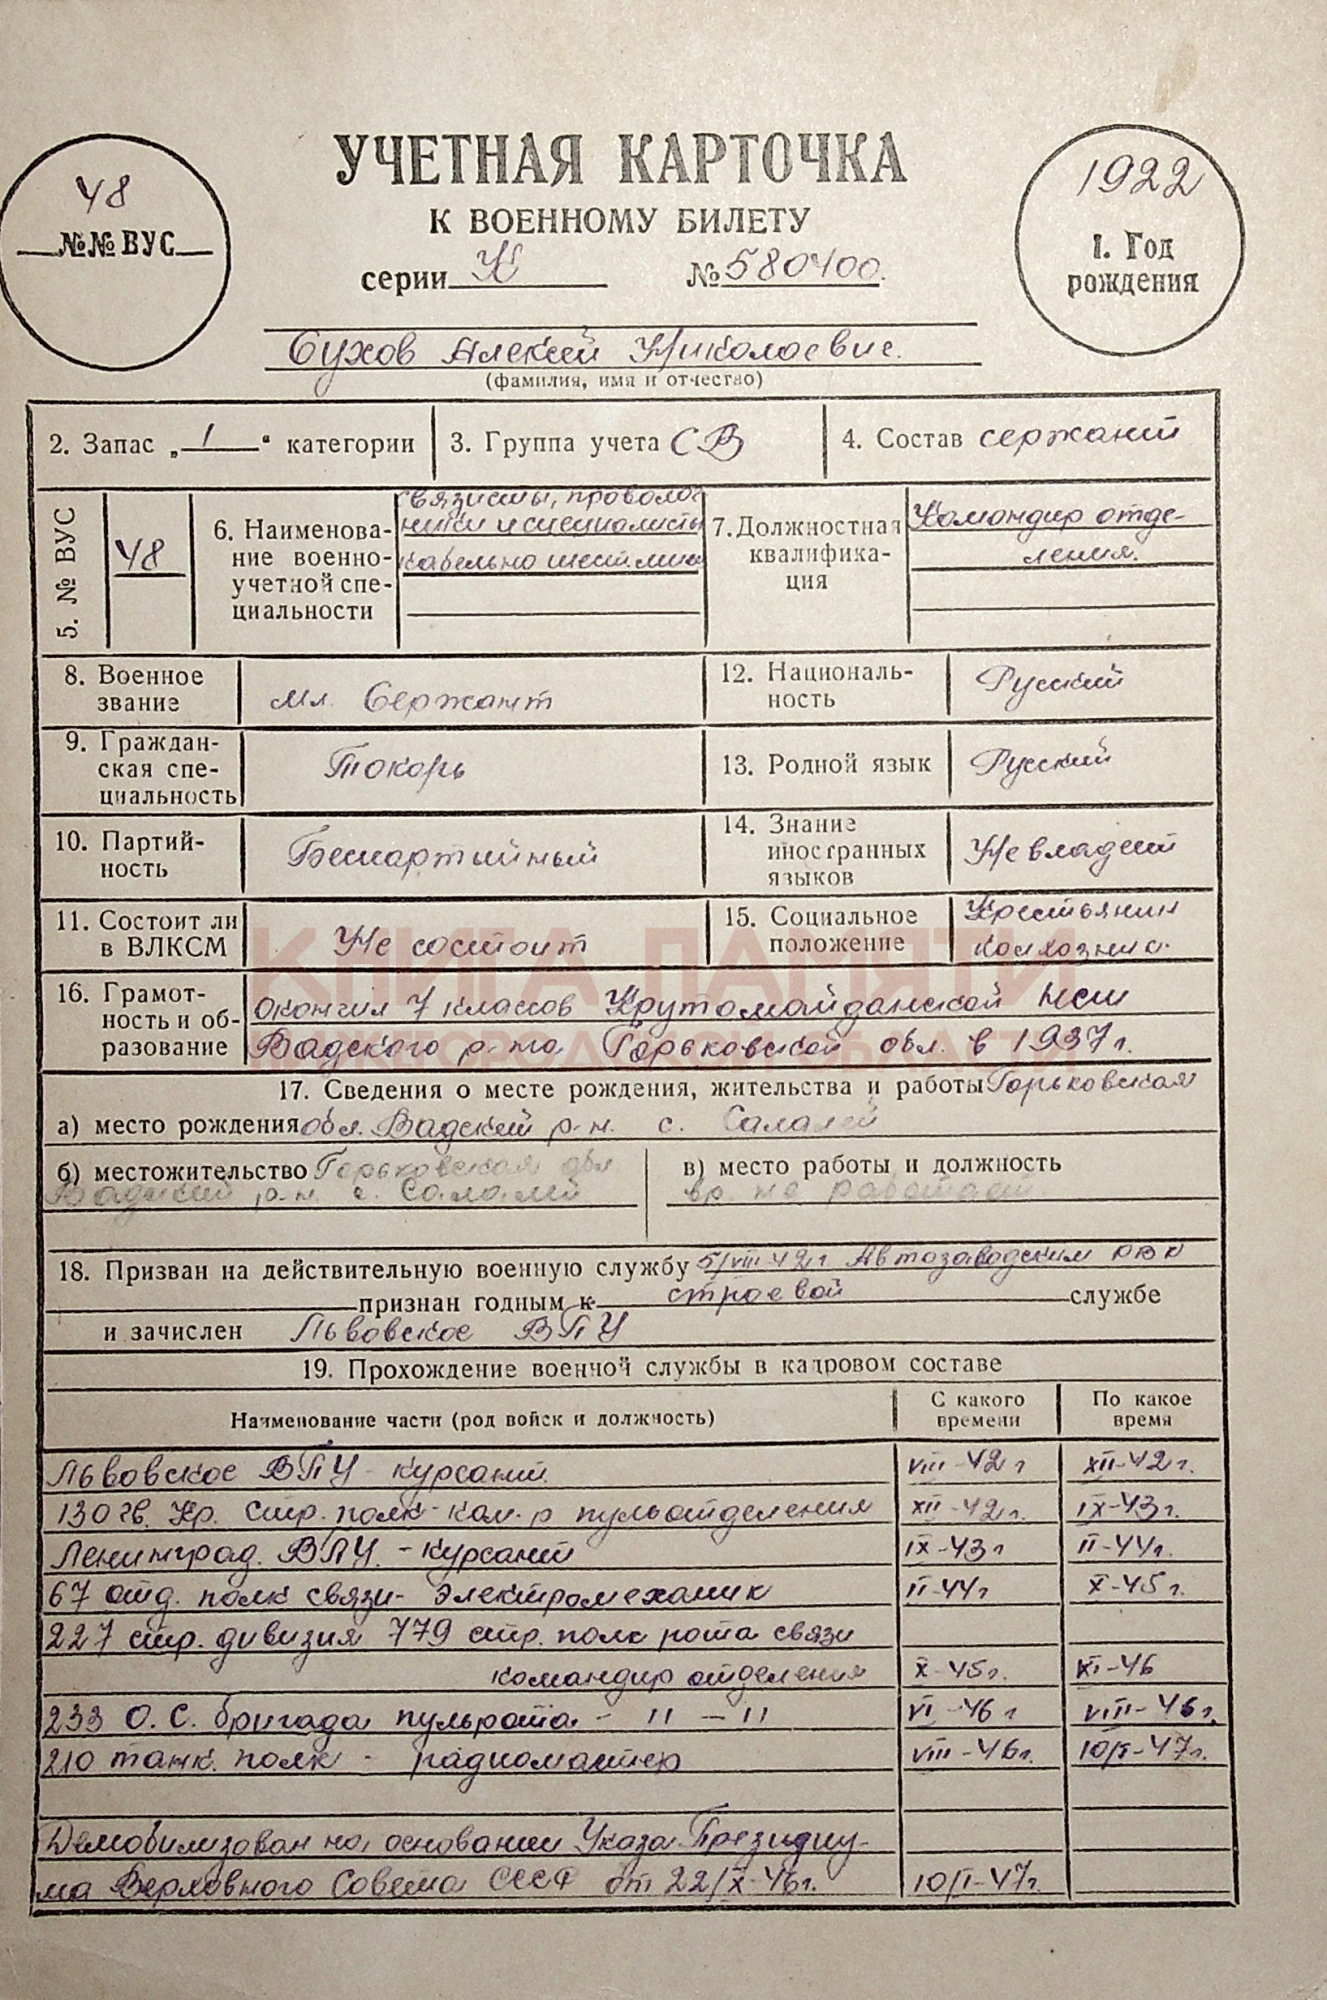 УЧЕТНАЯ КАРТОЧКА
К ВОЕННОМУ БИЛЕТУ
серии К № 580400.
48
№№ ВУС
1922
1. Год
рождения
Сухов Алексей Николаевич.
(фамилия, имя и отчество)
2. Запас „1“ категории
3. Группа учета СВ
4. Состав сержант
5. № ВУС
48
6. Наименова-
ние военно-
учетной спе-
циальности
связисты, проволоч
ники и специалисты
кабельно шест. лин
7. Должностная
квалифика-
ция
Командир отде-
ления.
8. Военное
звание
Мл. Сержант
12. Националь-
ность
Русский
9. Граждан-
ская спе-
циальность
Токарь
13. Родной язык
Русский
10. Партий-
ность
Беспартийный
14. Знание
иностранных
языков
Не владеет
11. Состоит ли
в ВЛКСМ
Не состоит
15. Социальное
положение
Крестьянин
колхозник.
КНИГА ПАМЯТИ
НИЖЕГОРОДСКОЙ ОБЛАСТИ
16. Грамот-
ность и об-
разование
окончил 7 классов Крутомайданской нсш
Вадского р-на Горьковской обл. в 1937г.
17. Сведения о месте рождения, жительства и работы Горьковская
а) место рождения обл. Вадский р-н. с. Салалей
б) местожительство Горьковская обл.
Вадский р-н. с. Салалей
в) место работы и должность
вр. не работает
18. Призван на действительную военную службу 5/VIII-42г Автозаводским РВК
признан годным к строевой службе
и зачислен Львовское ВПУ
19. Прохождение военной службы в кадровом составе
Наименование части (род войск и должность)
С какого
времени
По какое
время
Львовское ВПУ - курсант. VIII-42г XII-42г.
130 гв. Кр. Стр. полк - ком-р пульотделения XII-42г. IX-43г.
Ленинград. ВПУ. - курсант IX-43г II-44г.
67 отд. полк связи - Электромеханик II-44г X-45г.
227 стр. дивизия 779 стр. полк рота связи
командир отделения X-45г. VI-46
233 О. С. бригада пульрота - " - " VI-46г VIII-46г.
210 танк. полк - радиомастер VIII-46г. 10/I-47г.
Демобилизован на основании Указа Президиу-
ма Верховного Совета СССР от 22/X-46г. 10/I-47г.